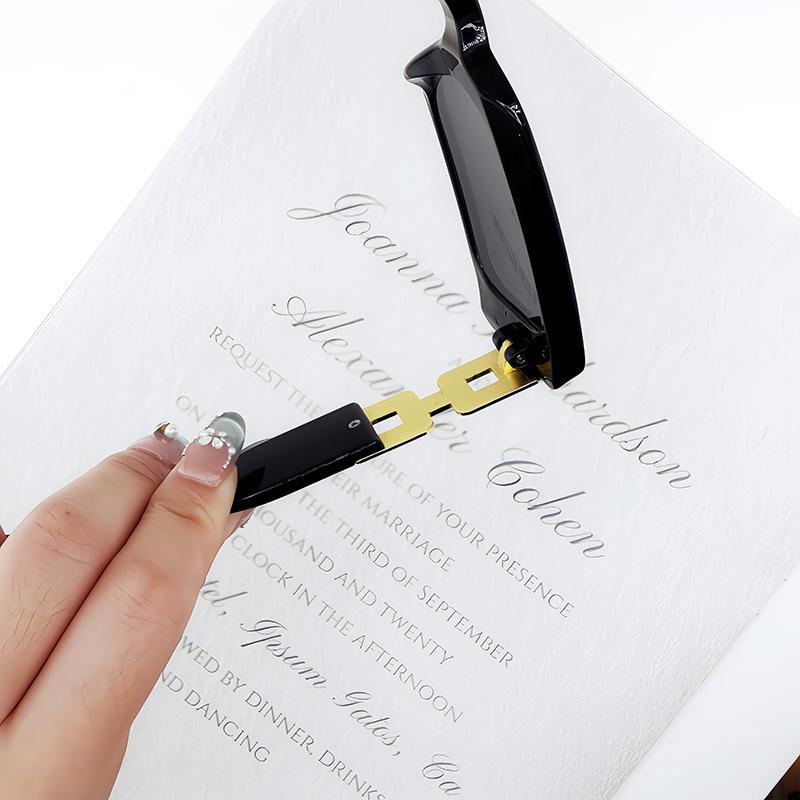 Joanna Richardson
Alexander Cohen
REQUEST THE URE OF YOUR PRESENCE
ON EIR MARRIAGE
THE THIRD OF SEPTEMBER
HOUSAND AND TWENTY
CLOCK IN THE AFTERNOON
tel, Ipsum Galos, Ca
WED BY DINNER, DRINKS
ND DANCING